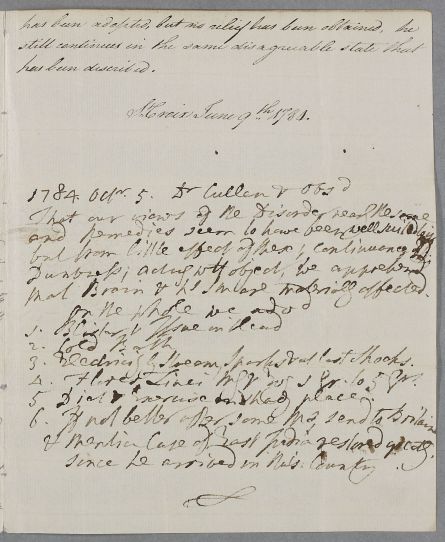 has been adopted, but no relief has been obtained, he
still continues in the same disagreeable state that
has been described.
St Croix June 9th 1784.
1784. Octr. 5. Dr Cullen & obs'd
That our views of the Disorder near the same
and remedies seem to have been well suited
but from little effect of these; continuance of
Dumbness; acting witht object, we apprehend
that Brain & materially affected.
On the whole we advd
1. Blister, & Issue in Head
2. Cold Bath
3. Electricity, Stream, Sparks at last Shocks.
4. Flores Zinci 1 gr. to 5 gr.
5 Diet & exercise in shady places.
6. If not better after some ms, send to Britain
& mention Case of East India restored greatly
since he arrived in this Country